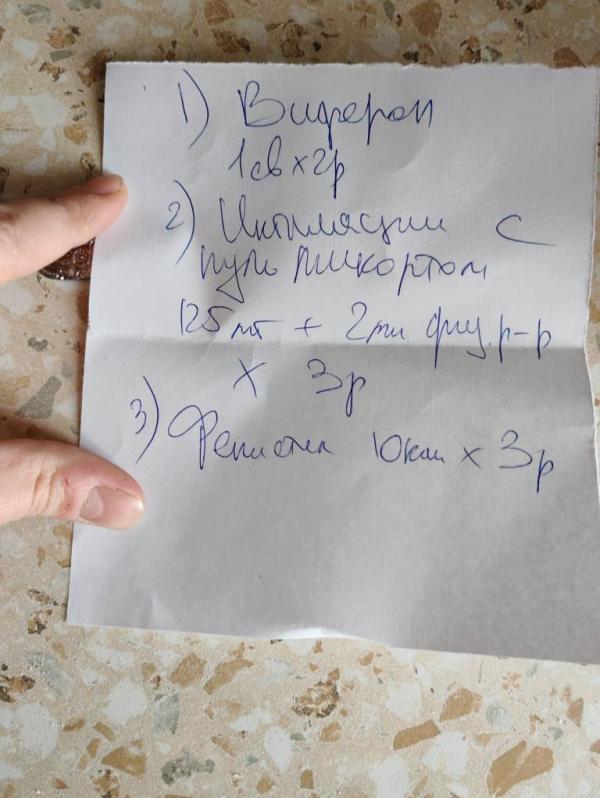 1) Виферон
1св x 2р
2) Ингаляции с
пульмикортом
125 мг + 2мл физ. р-р
x 3р
3) Фенистил 10кап x 3р